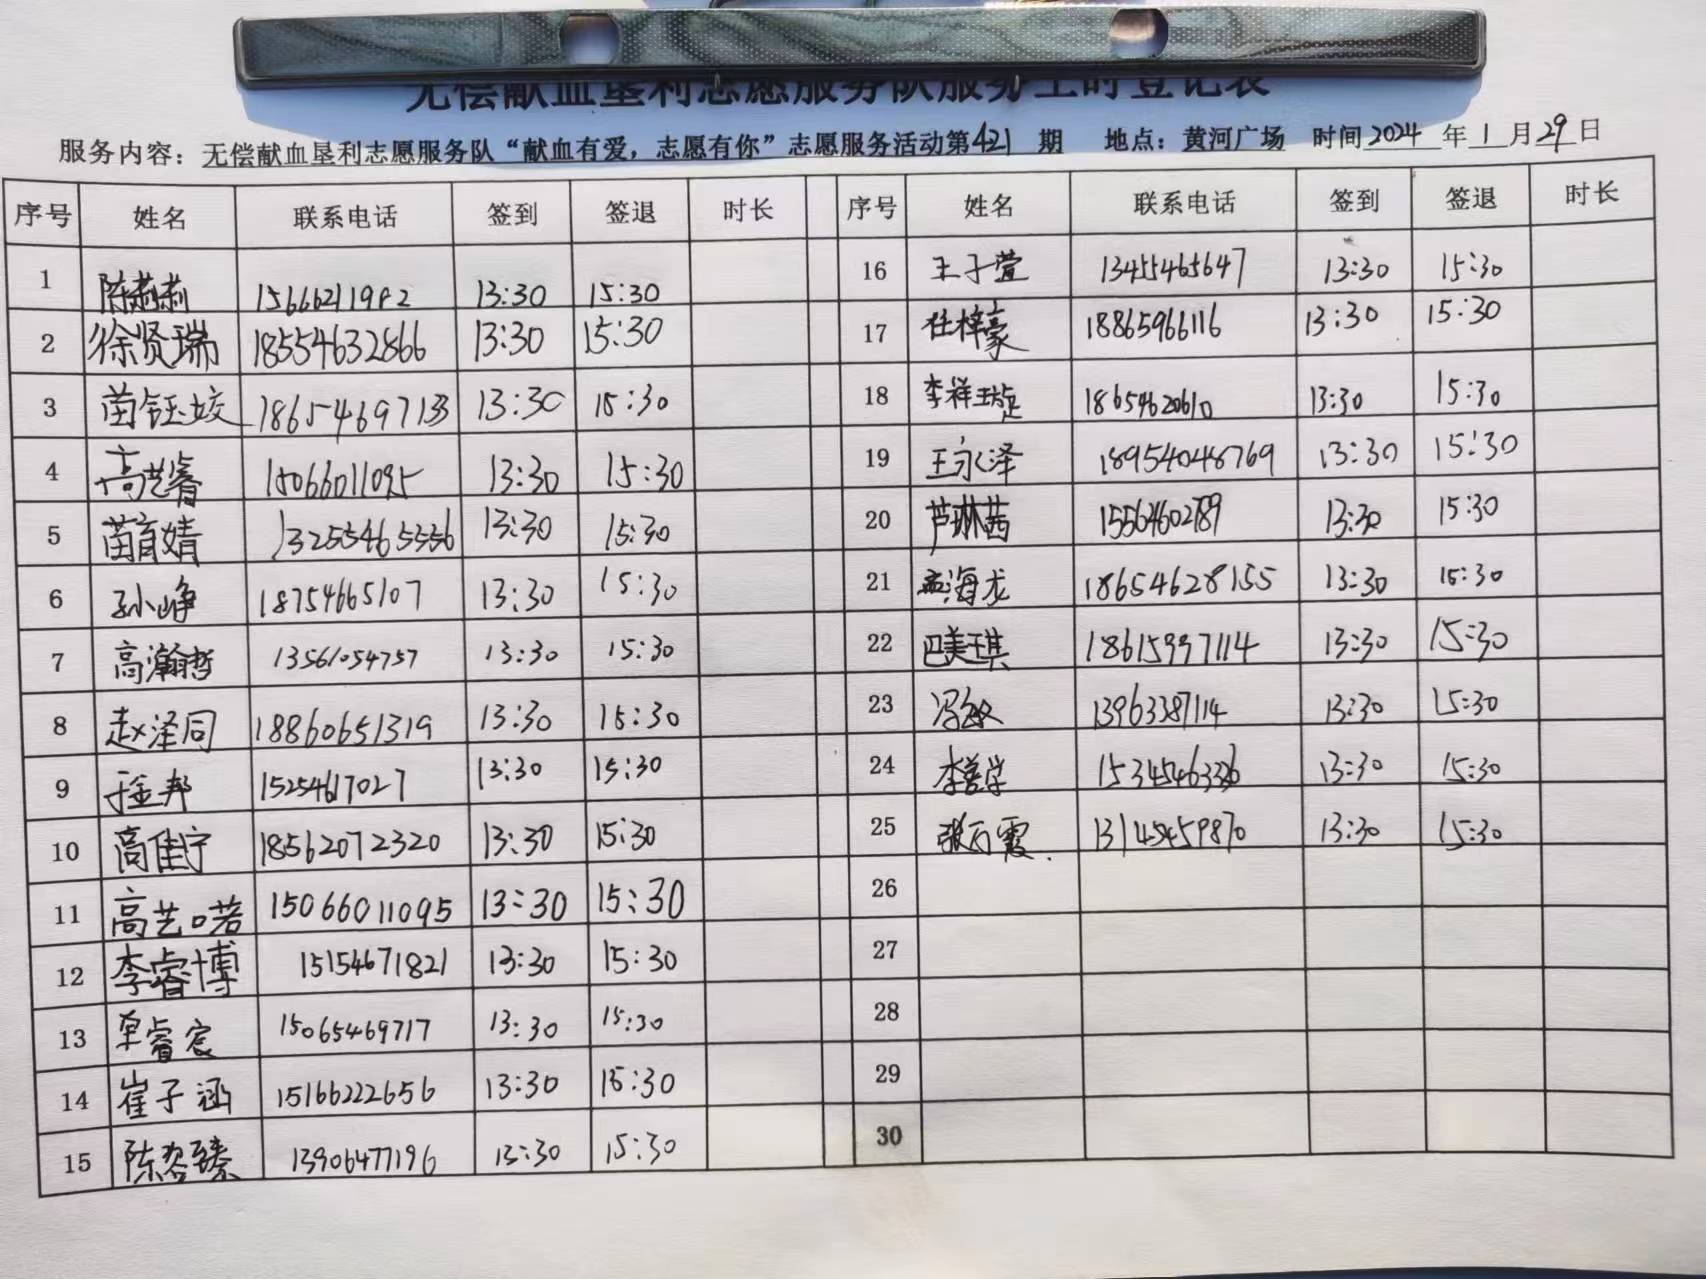 无偿献血垦利志愿服务队服务工时登记表
服务内容：无偿献血垦利志愿服务队“献血有爱，志愿有你”志愿服务活动第421期 地点：黄河广场 时间2024年1月29日
序号 姓名 联系电话 签到 签退 时长 序号 姓名 联系电话 签到 签退 时长
1 陈莉莉 13:30 15:30
2 徐贤瑞 18554632866 13:30 15:30
3 苗钰姣 18654697133 13:30 15:30
4 高艺睿 15066011095 13:30 15:30
5 苗育婧 13255465556 13:30 15:30
6 孙峥 18754665107 13:30 15:30
7 高瀚哲 13561054757 13:30 15:30
8 赵泽同 18860651319 13:30 15:30
9 15254617027 13:30 15:30
10 高佳宁 18562072320 13:30 15:30
11 高艺口若 15066011095 13:30 15:30
12 李睿博 15154671821 13:30 15:30
13 单睿宸 15065469717 13:30 15:30
14 崔子涵 15166222656 13:30 15:30
15 陈 臻 13906477196 13:30 15:30
16 王子萱 13455465647 13:30 15:30
17 任梓豪 18865966116 13:30 15:30
18 李祥 18654620610 13:30 15:30
19 王永泽 18954048769 13:30 15:30
20 芦琳茜 15564602789 13:30 15:30
21 孟海龙 18654628155 13:30 15:30
22 巴美琪 18615997114 13:30 15:30
23 冯敏 13963387114 13:30 15:30
24 李善学 13:30 15:30
25 张 霞 13145459870 13:30 15:30
26
27
28
29
30